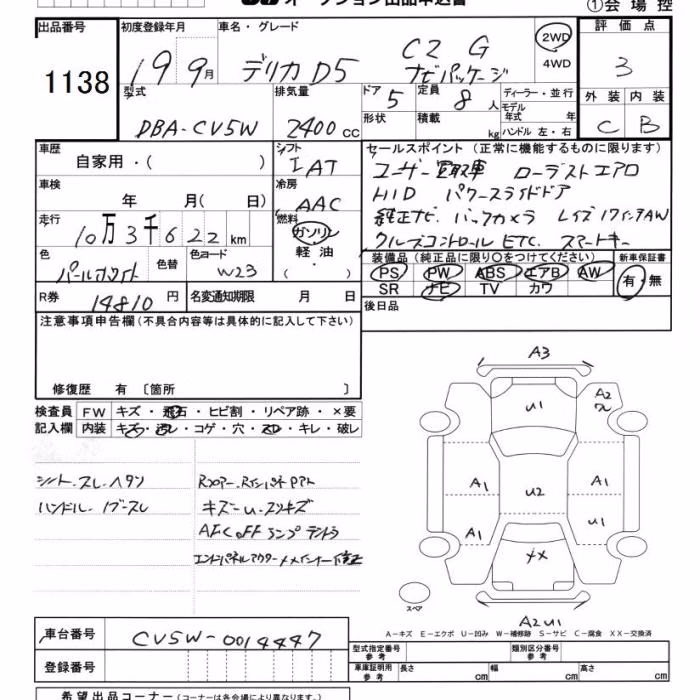 オークション出品申込書
①会場控
出品番号 初度登録年月 車名・グレード 評価点
1138
19 9月 デリカD5 C2 G ナビパッケージ
2WD
4WD
3
型式 排気量 ドア 定員 ディーラー・並行 外装 内装
DBA-CV5W 2400cc 5 8人 モデル年式 年
形状 積載 kg ハンドル 左・右 C B
車歴 シフト セールスポイント (正常に機能するものに限ります)
自家用・( ) IAT ユーザー買取車 ローデストエアロ
車検 冷房 HID パワースライドドア
年 月( 日) AAC 純正ナビ バックカメラ レイズ17インチAW
走行 燃料 クルーズコントロール ETC. スマートキー
10万3千622km ガソリン
軽油
・( )
色 色替 色コード 装備品 (純正品に限り○をつけてください) 新車保証書
パールホワイト W23 PS PW ABS エアB AW 有・無
SR ナビ TV カワ
R券 14810円 名変通知期限 月 日 後日品
注意事項申告欄 (不具合内容等は具体的に記入して下さい)
修復歴 有 〔箇所 〕
検査員 FW キズ・飛石・ヒビ割・リペア跡・×要
記入欄 内装 キズ・汚レ・コゲ・穴・スレ・キレ・破レ
シート.スレ.ヘタリ
ハンドル.
キズ-U.スリキズ
エンドパネルアウター
A3
U1
A2
A1
U2
A1
A1
U1
××
A2 U1
スペア
A-キズ E-エクボ U-凹み W-補修跡 S-サビ C-腐食 XX-交換済
車台番号 CV5W-0014447
型式指定番号 参考 類別区分番号 参考
登録番号
車庫証明用 参考 長さ cm 幅 cm 高さ cm
希望出品コーナー (コーナーは各会場により異なります。)